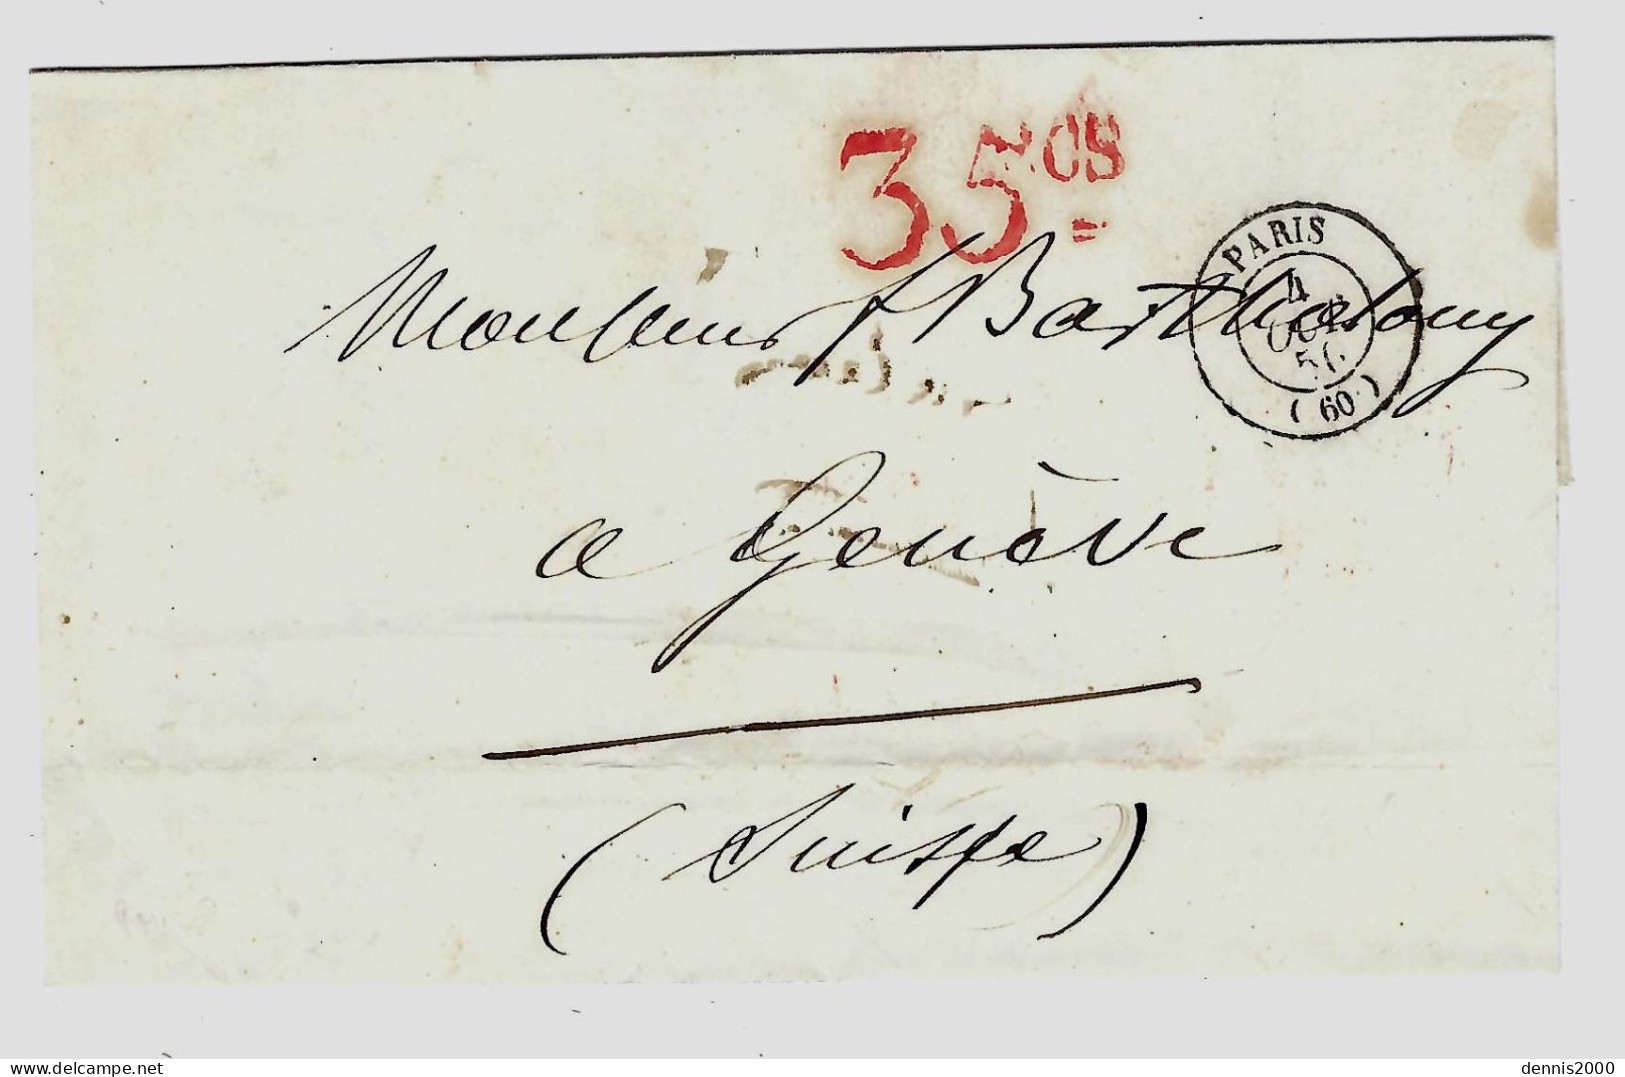 35 cs
PARIS
4
(60)
Monsieur f Bartholony
a Genève
(Suisse)
delcampe.net
dennis2000